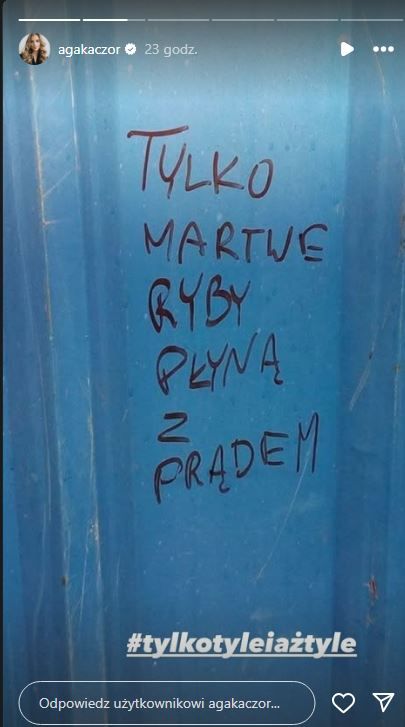 agakaczor 23 godz.
TYLKO
MARTWE
RYBY
PŁYNĄ
Z
PRĄDEM
#tylkotyleiażtyle
Odpowiedz użytkownikowi agakaczor...